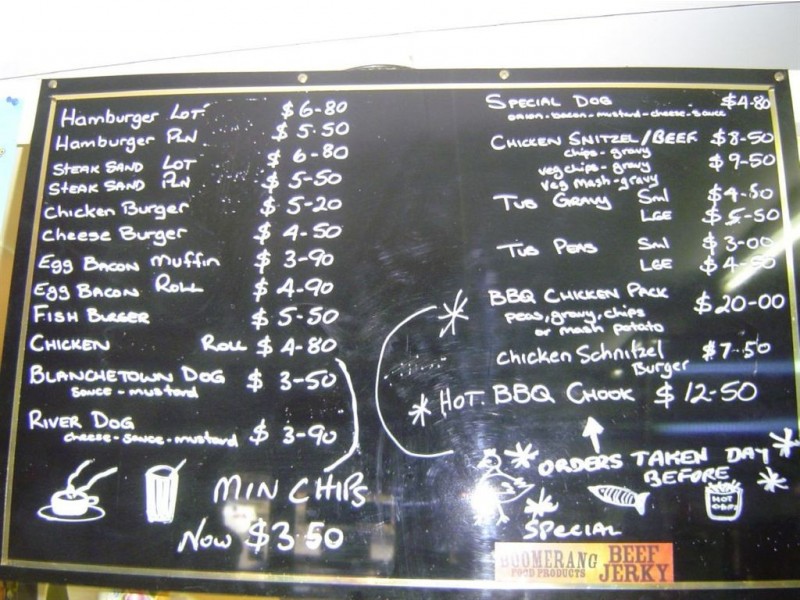 Hamburger LOT $6-80
Hamburger PLN $5-50
STEAK SAND LOT $6-80
STEAK SAND PLN $5-50
Chicken Burger $5-20
Cheese Burger $4-50
Egg BACON muffin $3-90
Egg BACON ROLL $4-90
FISH BURGER $5-50
CHICKEN ROLL $4-80
BLANCHETOWN DOG $3-50
sauce - mustard
RIVER DOG
cheese-sauce-mustard $3-90
MIN CHIPS
NOW $3.50
SPECIAL DOG $4-80
onion-bacon-mustard-cheese-sauce
CHICKEN SNITZEL/BEEF $8-50
chips-gravy
veg chips-gravy $9-50
veg mash-gravy
TUB GRAVY Sml $4-50
LGE $5-50
TUB PEAS Sml $3-00
LGE $4-50
BBQ CHICKEN PACK $20-00
peas, gravy, chips
or mash potato
Chicken Schnitzel $7-50
Burger
HOT BBQ CHOOK $12-50
ORDERS TAKEN DAY
BEFORE
HOT
CHIPS
SPECIAL
BOOMERANG BEEF
FOOD PRODUCTS JERKY